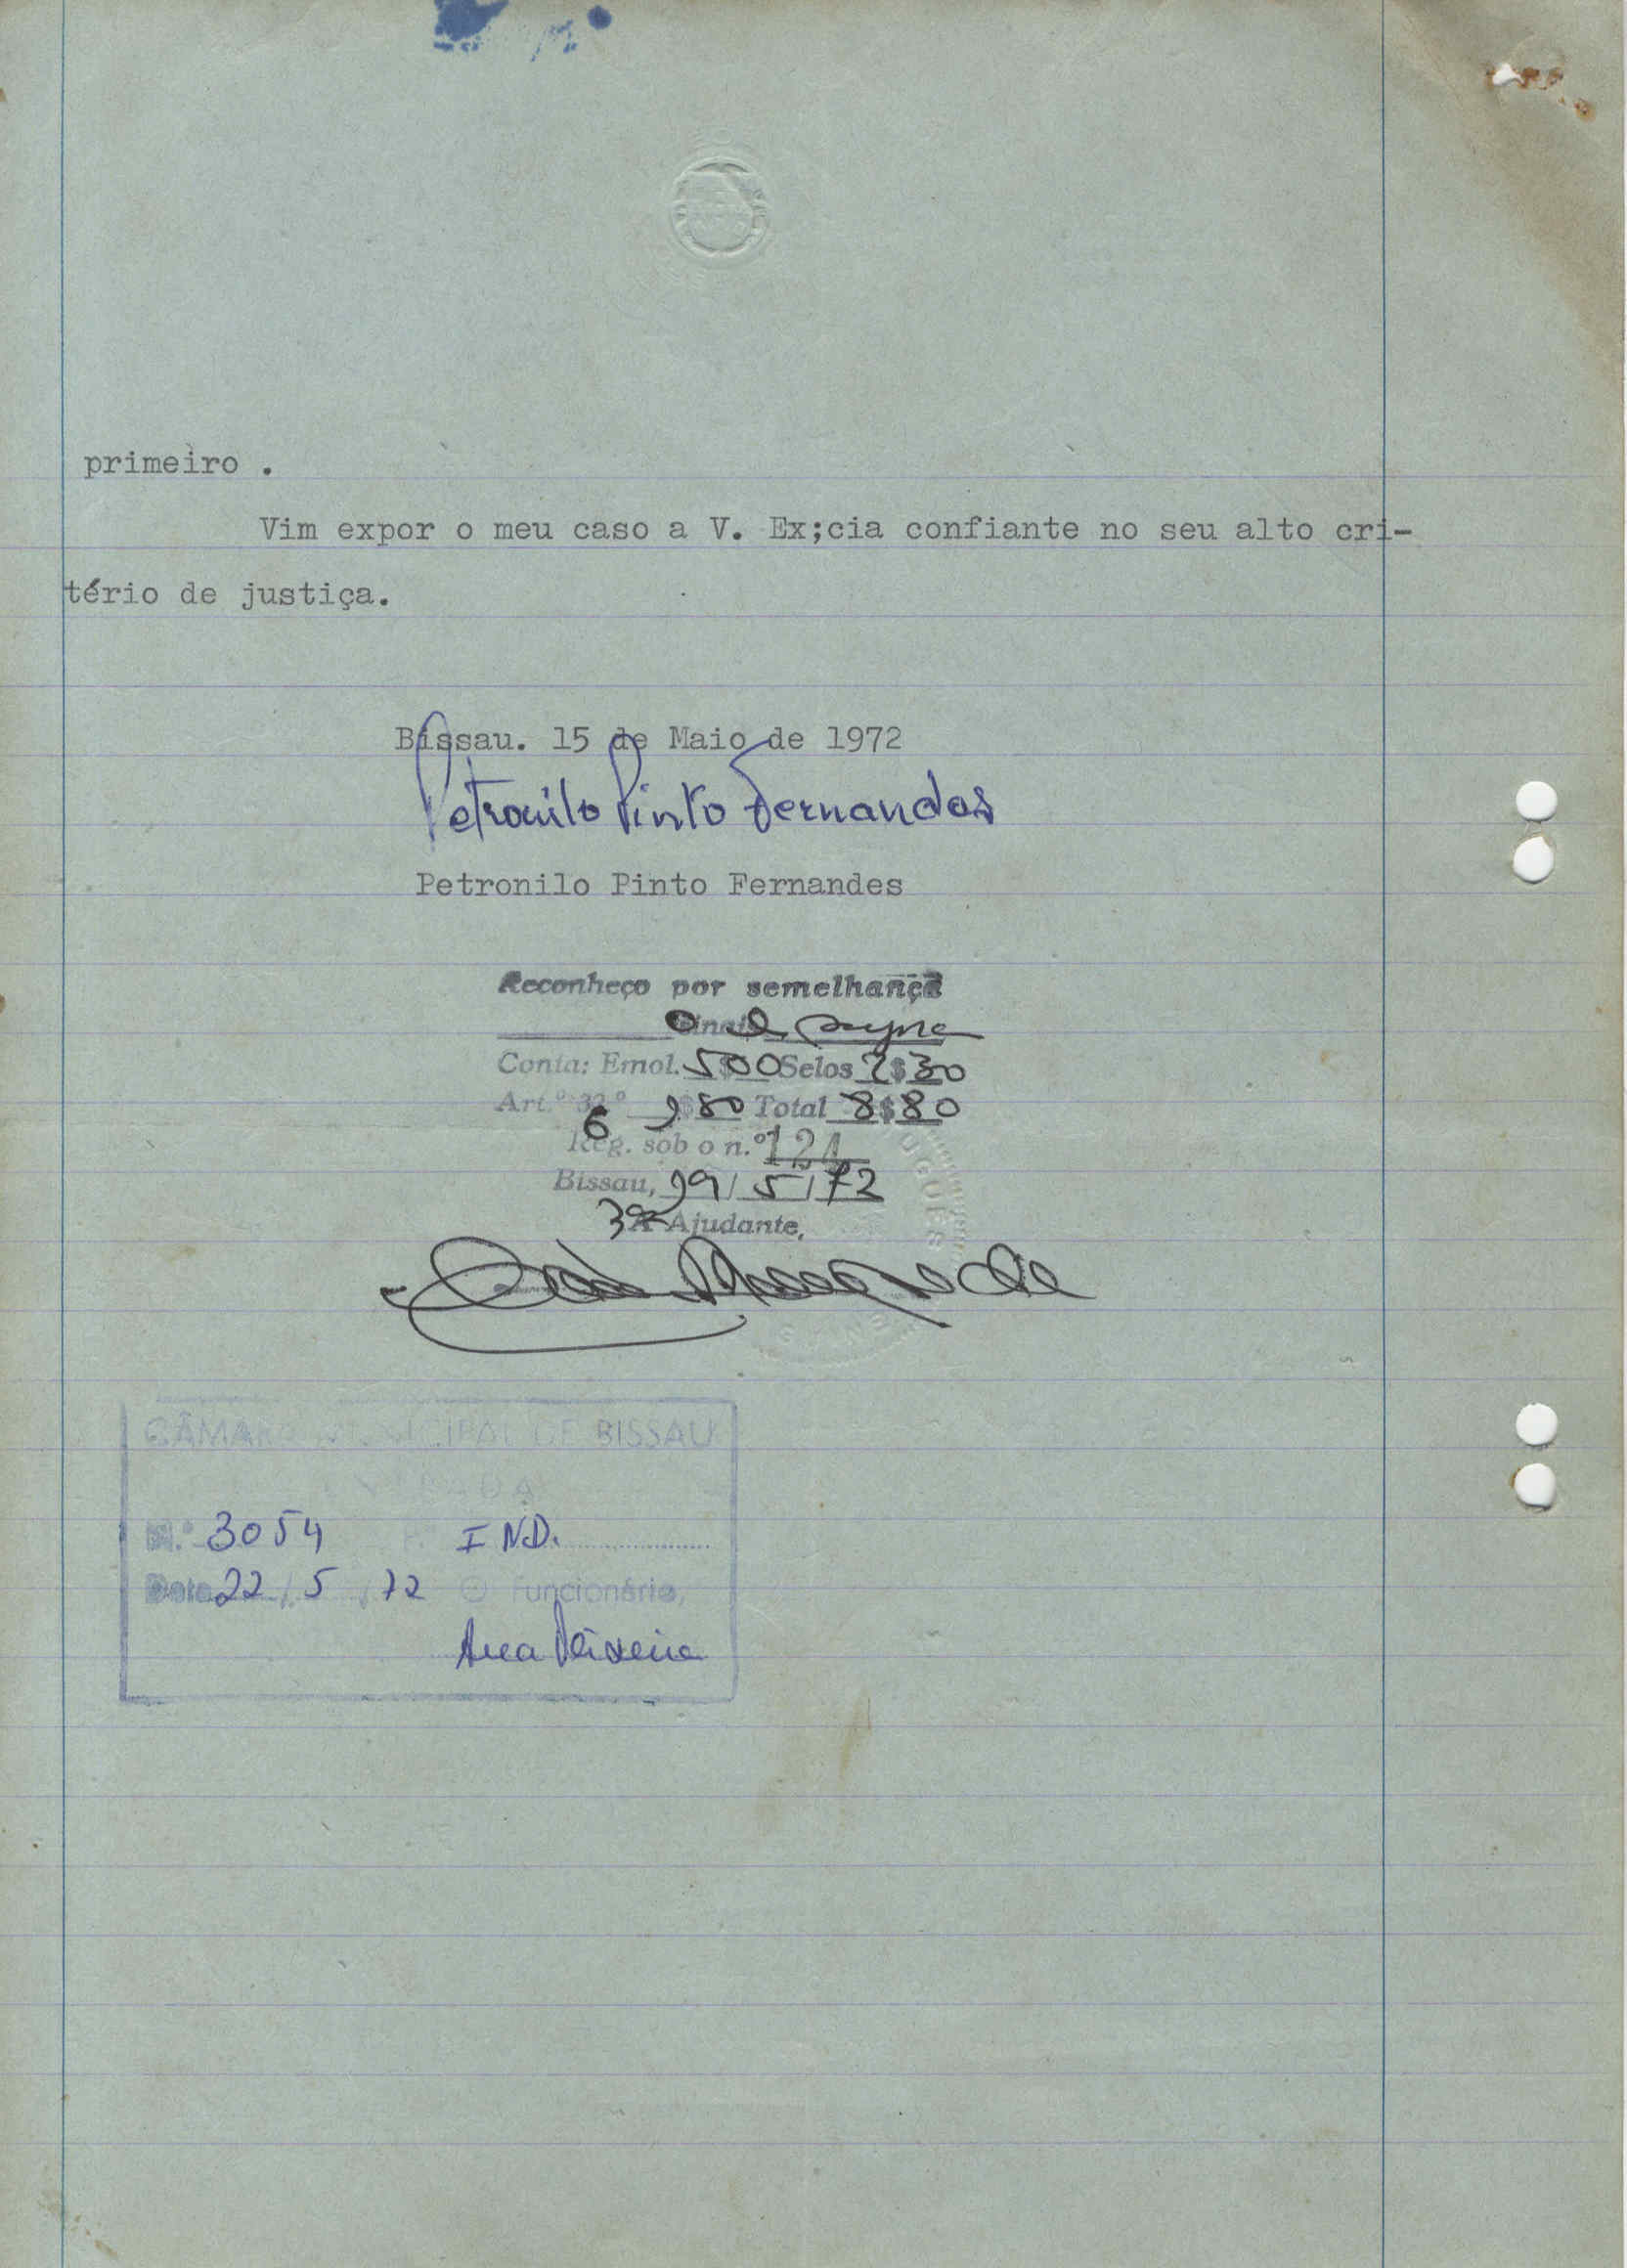 primeiro .
Vim expor o meu caso a V. Ex;cia confiante no seu alto cri-
tério de justiça.
Bissau. 15 de Maio de 1972
Petronilo Pinto Fernandes
Petronilo Pinto Fernandes
Reconheço por semelhança
Conta: Emol. 5$00 Selos 2$30
Art.º 32.º $80 Total 8$80
6
Reg. sob o n.º 124
Bissau, 19/5/72
3º Ajudante,
CÂMARA MUNICIPAL DE BISSAU
N.º 3054 IND.
Data 22/5/72 O Funcionário,
Ana Teixeira